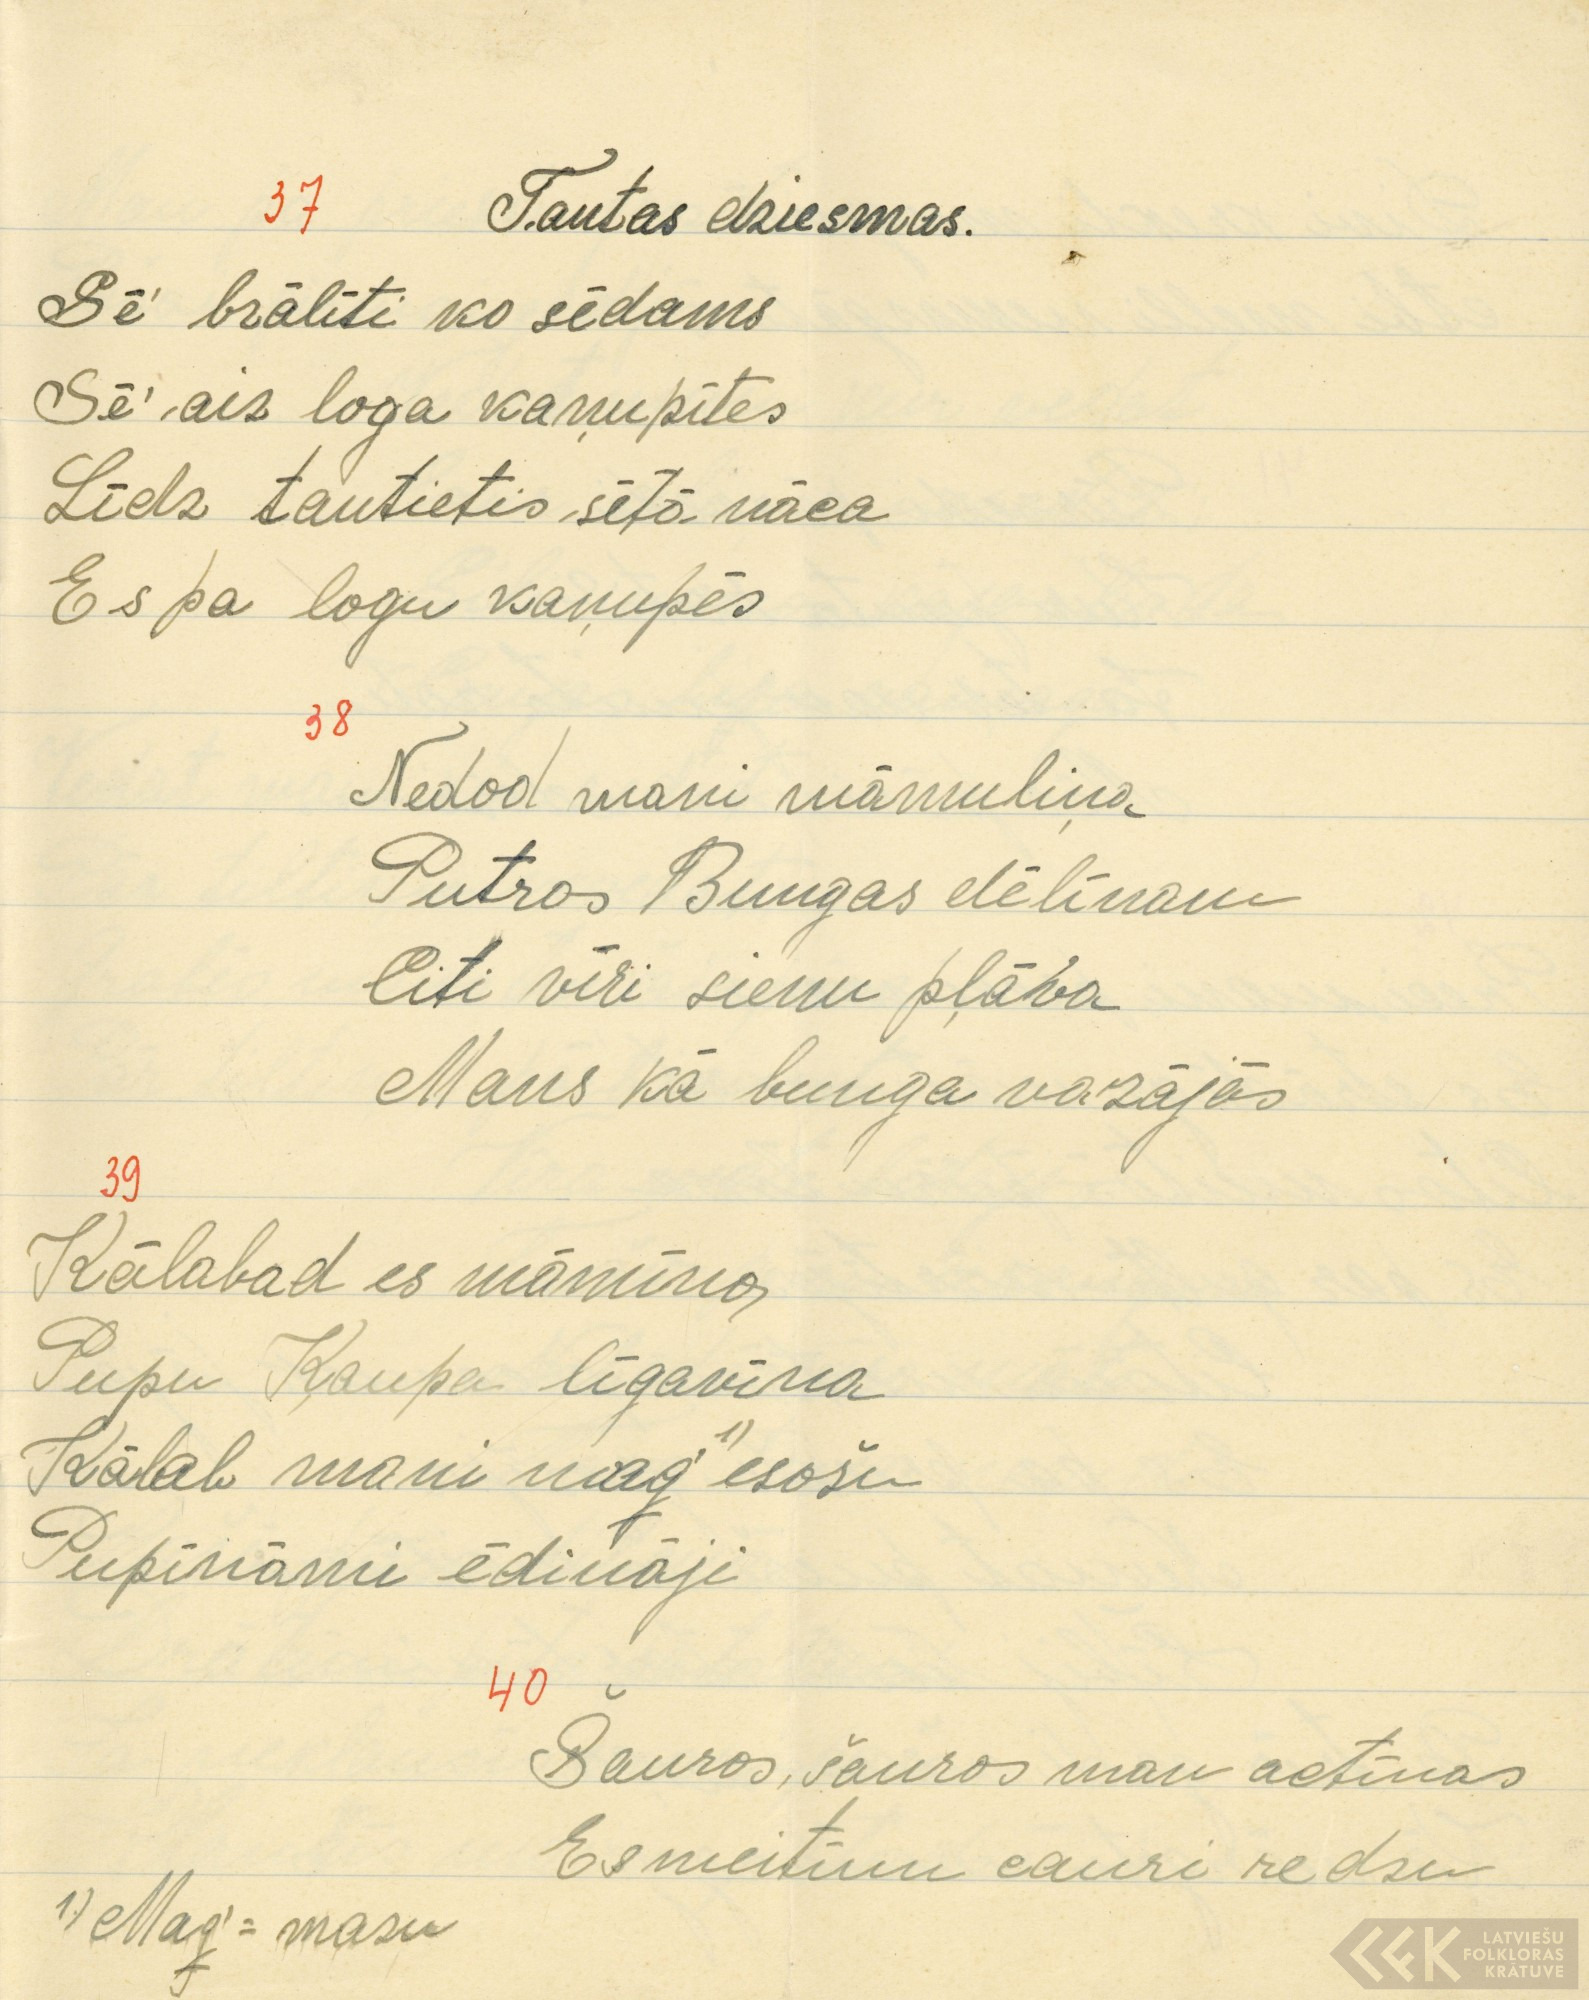 37 Tautas dziesmas.
Sē' brālīti ko sēdams
Sē' aiz loga kaņupītes
Līdz tautietis sētā nāca
Es pa logu kaņupēs
38
Nedod mani māmuliņa
Putras Bungas dēlīnam
Citi vīri sienu pļāva
Mans kā bunga vazājās
39
Kālabad es māmīna,
Pupu Kaupa līgavīna
Kālab mani mag' 1) esošu
Pupīnāmi ēdināji
40
Šauras, šauras man actīnas
Es meitīnu cauri redzu
1.) Mag' = mazu
LATVIEŠU
FOLKLORAS
KRĀTUVE